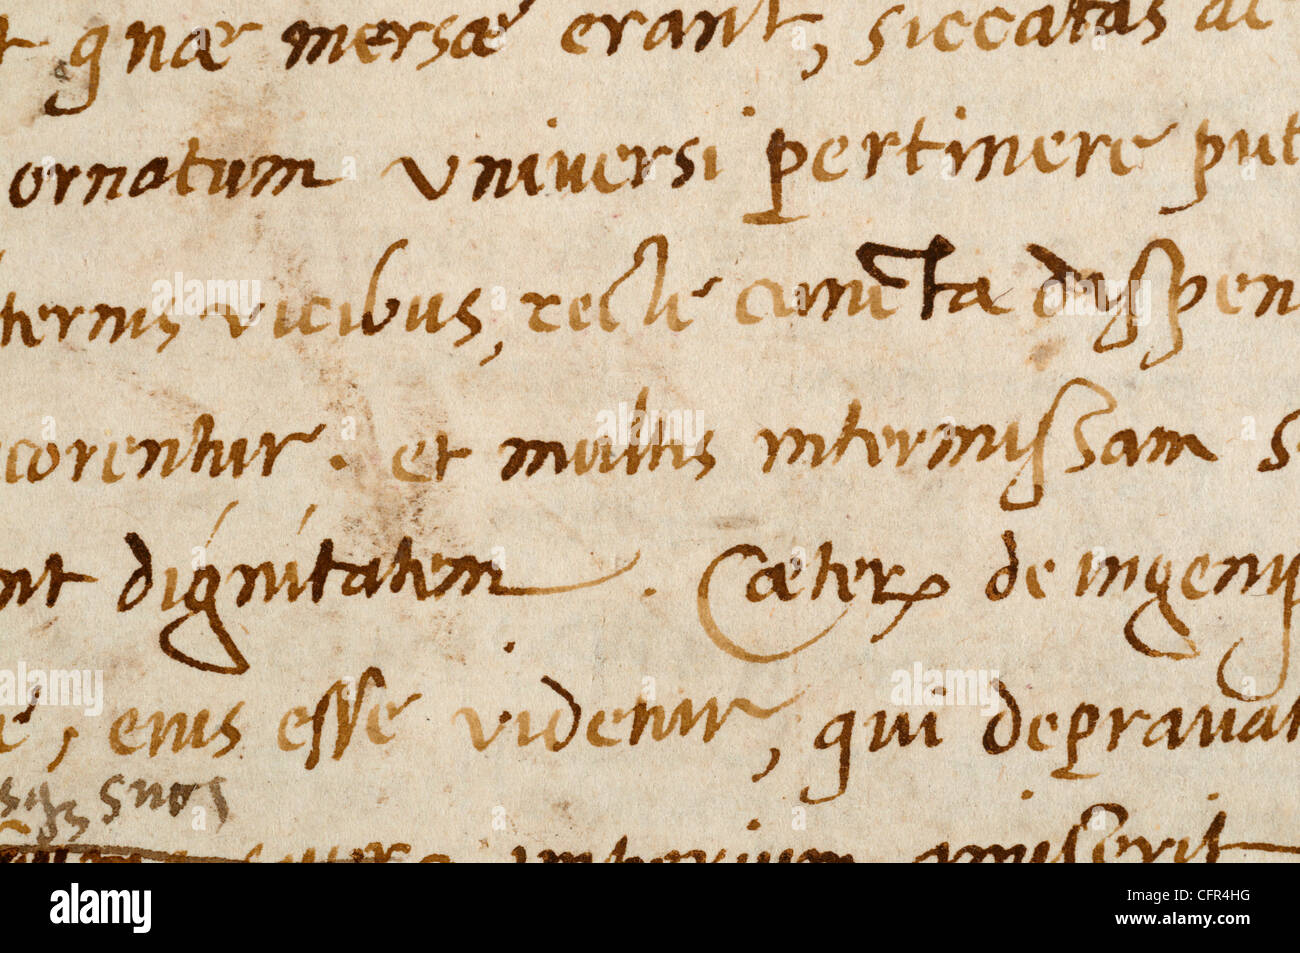 t quae mersae erant, siccatas ac
ornatum universi pertinere put
ternis vicibus, recte cuncta dispen
corentur. et multis intermissam s
nt dignitatem. Caeter de ingenij
é, eius esse videtur, qui depravat
sq; suos
imperium amiserit
alamy
Image ID: CFR4HG
www.alamy.com